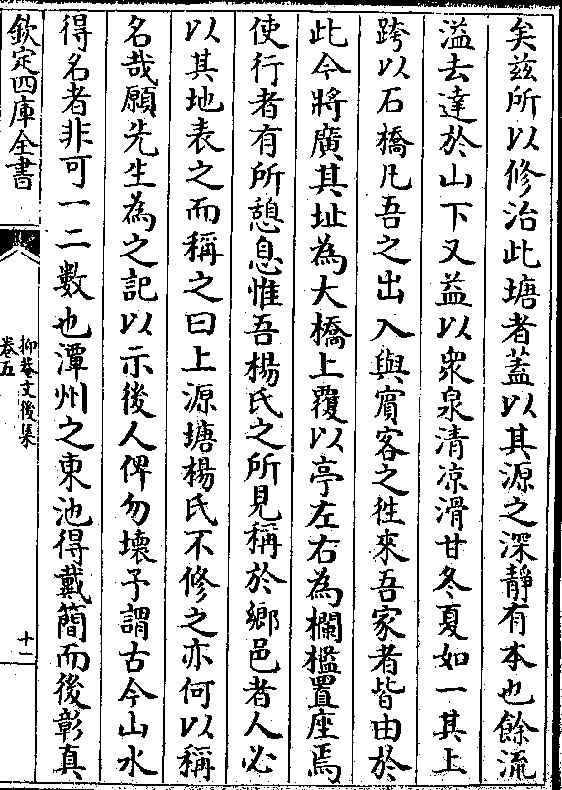 矣兹所以修治此塘者蓋以其源之深靜有本也餘流
溢去達於山下又益以衆泉清凉滑甘冬夏如一其上
跨以石橋凡吾之出入與賓客之徃來吾家者皆由於
此今將廣其址為大橋上覆以亭左右為欄檻置座焉
使行者有所憩息惟吾楊氏之所見稱於鄉邑者人必
以其地表之而稱之曰上源塘楊氏不修之亦何以稱
名哉願先生為之記以示後人俾勿壞予謂古今山水
得名者非可一二數也潭州之東池得戴簡而後彰真
欽定四庫全書
抑菴文後集
卷五
十二